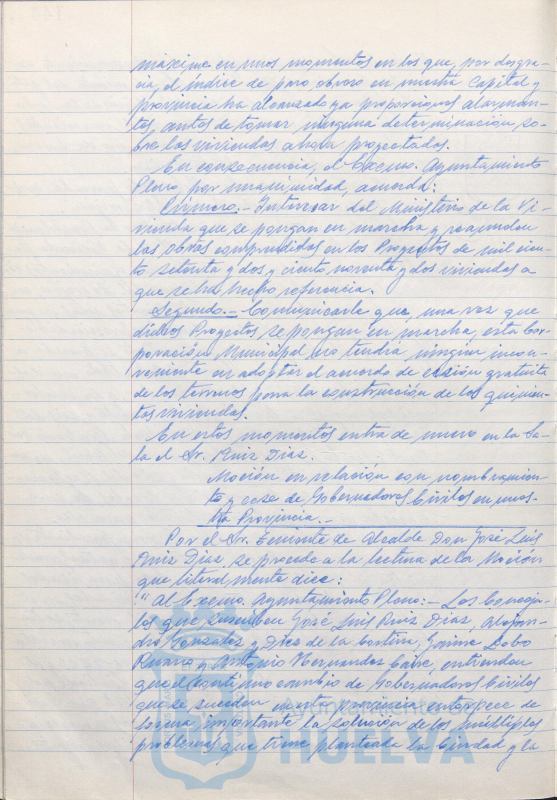 máxime en unos momentos en los que, por desgra-
cia, el índice de paro obrero en nuestra Capital y
provincia ha alcanzado ya proporciones alarman-
tes, antes de tomar ninguna determinación so-
bre las viviendas ahora proyectadas.
En consecuencia, el Excmo. Ayuntamiento
Pleno, por unanimidad, acuerda:
Primero.- Interesar del Ministerio de la Vi-
vienda que se pongan en marcha y reanuden
las obras comprendidas en los Proyectos de mil cien-
to setenta y dos y ciento noventa y dos viviendas a
que se ha hecho referencia.
Segundo.- Comunicarle que, una vez que
dichos Proyectos se pongan en marcha, esta Cor-
poración Municipal no tendrá ningún incon-
veniente en adoptar el acuerdo de cesión gratuita
de los terrenos para la construcción de las quinien-
tas viviendas.
En estos momentos entra de nuevo en la Sa-
la el Sr. Ruiz Díaz.
Moción en relación con nombramien-
to y cese de Gobernadores Civiles en nues-
tra Provincia.-
Por el Sr. Teniente de Alcalde Don José Luis
Ruiz Díaz se procede a la lectura de la Moción
que literalmente dice:
"Al Excmo. Ayuntamiento Pleno:- Los Conceja-
les que suscriben José Luis Ruiz Díaz, Alejan-
dro González y Díez de la Cortina, Jaime Lobo
y Antonio Hernández entienden
que el continuo cambio de Gobernadores Civiles
que se suceden en esta provincia entorpece de
forma importante la solución de los múltiples
problemas que tiene planteada la Ciudad y la
HUELVA